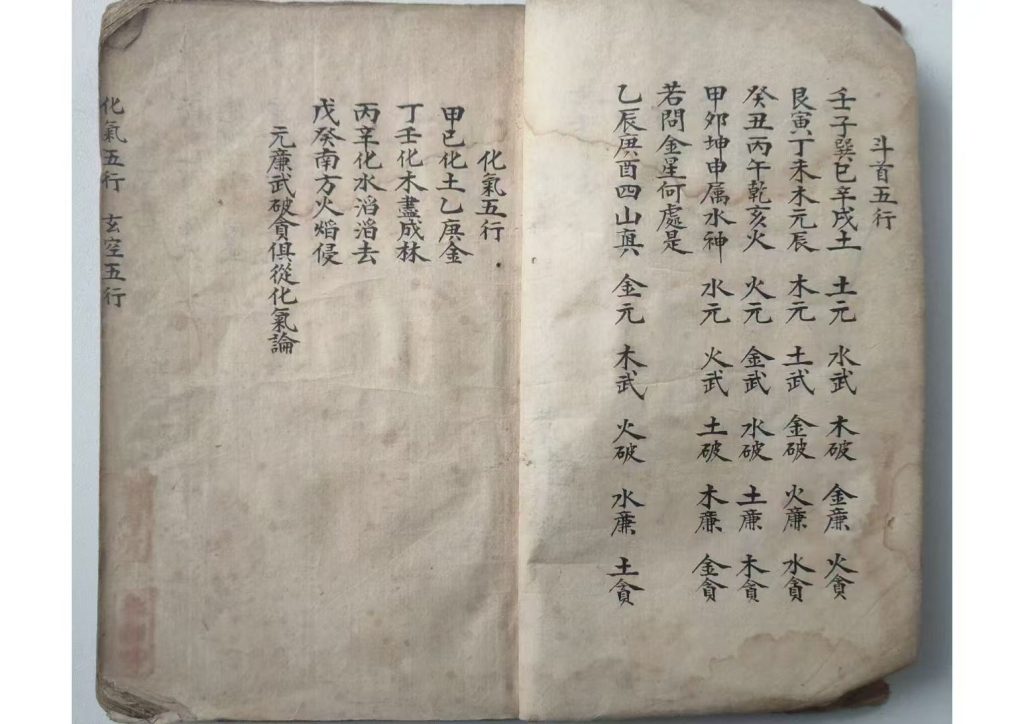 斗首五行
壬子巽巳辛戌土 土元 水武 木破 金廉 火貪
艮寅丁未木元辰 木元 土武 金破 火廉 水貪
癸丑丙午乾亥火 火元 金武 水破 土廉 木貪
甲夘坤申属水神 水元 火武 土破 木廉 金貪
若問金星何處是
乙辰庚酉四山真 金元 木武 火破 水廉 土貪
化氣五行
甲巳化土乙庚金
丁壬化木盡成林
丙辛化水滔滔去
戊癸南方火焰侵
元廉武破貪俱從化氣論
化氣五行 玄空五行